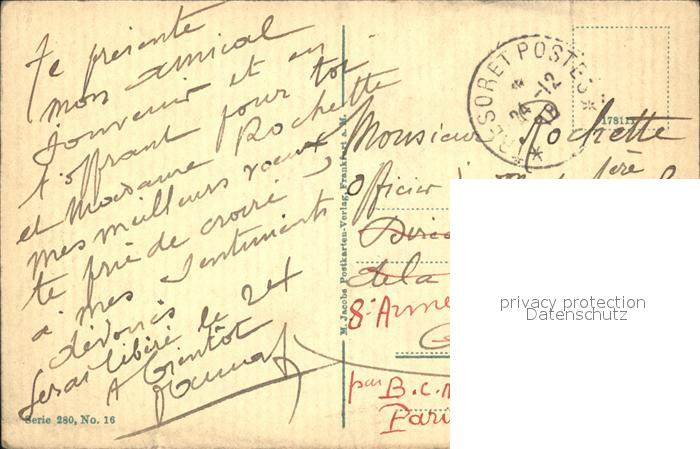 Je présente
mon amical
souvenir et en
t'offrant pour toi
et Madame Rochette
mes meilleurs voeux
te prie de croire
à mes sentiments
dévoués
serai libéré le 24
A bientôt
Serie 280, No. 16
M. Jacobs Postkarten-Verlag, Frankfurt a. M.
TRESOR ET POSTES
24 -12
178111
Monsieur Rochette
Officier
de la
8e Armée
par B.C.M
Paris
privacy protection
Datenschutz